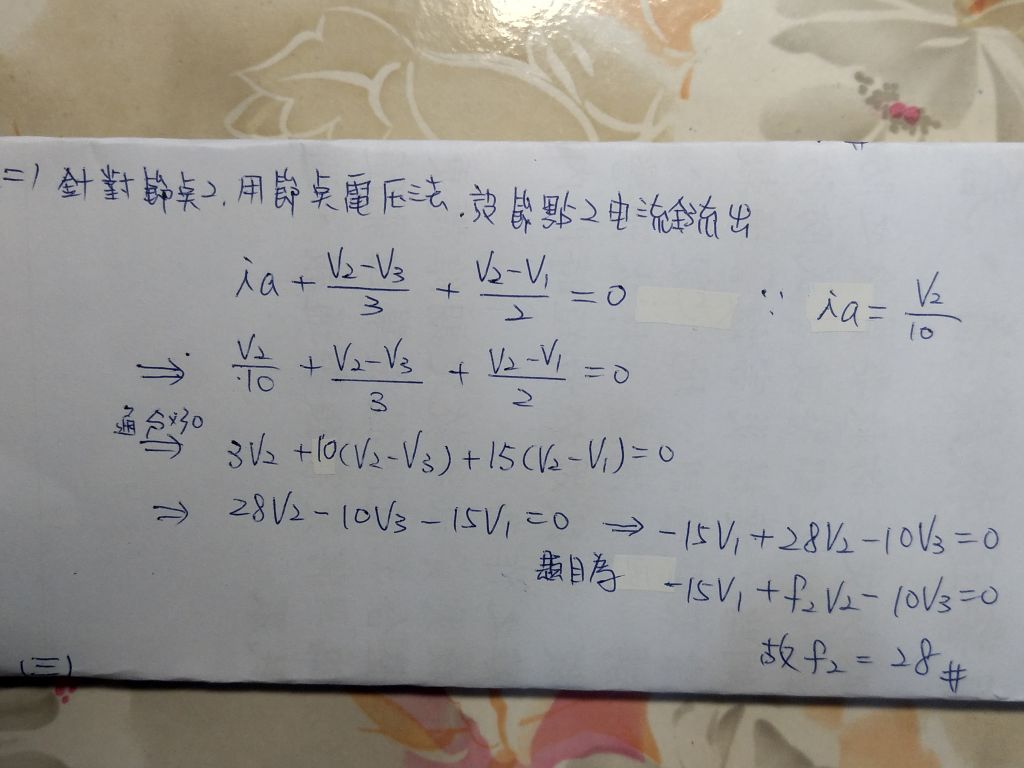 二) 針對節点2, 用節点電压法, 設節點2电流全流出
ia + (V2-V3)/3 + (V2-V1)/2 = 0 ∵ ia = V2/10
⇒ V2/10 + (V2-V3)/3 + (V2-V1)/2 = 0
通分×30
⇒ 3V2 + 10(V2-V3) + 15(V2-V1) = 0
⇒ 28V2 - 10V3 - 15V1 = 0 ⇒ -15V1 + 28V2 - 10V3 = 0
題目為 -15V1 + f2V2 - 10V3 = 0
故 f2 = 28 #
(三)